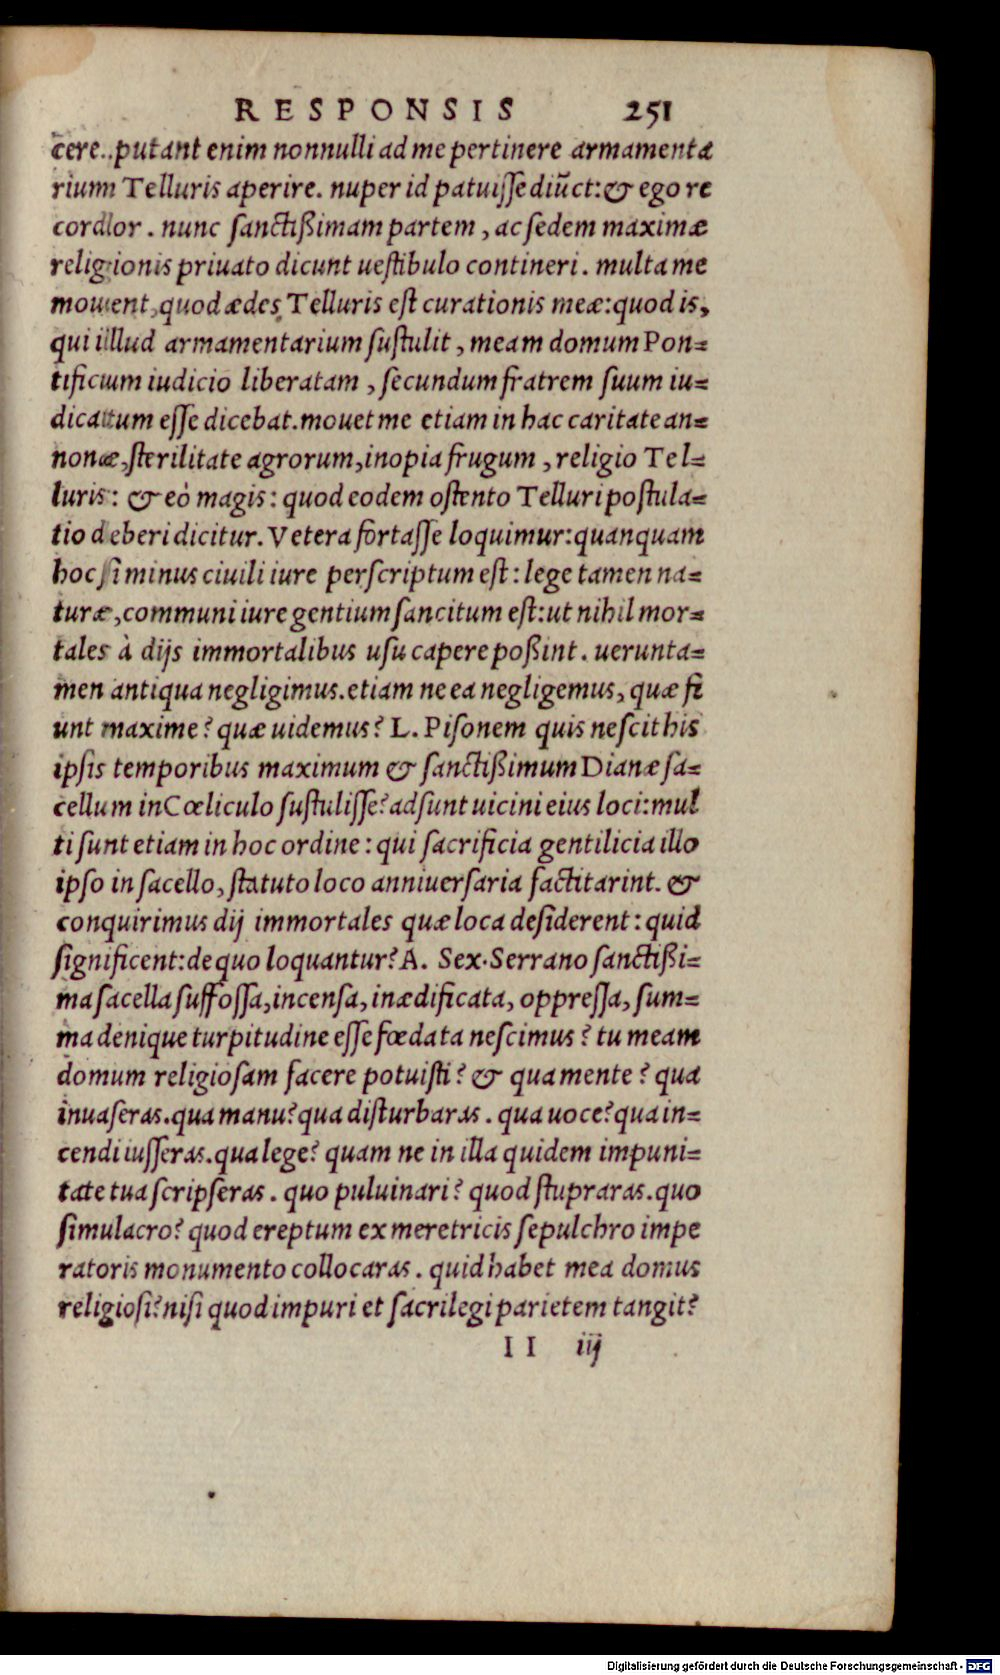 RESPONSIS 251
cere. putant enim nonnulli ad me pertinere armamenta
rium Telluris aperire. nuper id patuisse diũct: & ego re
cordor. nunc sanctißimam partem, ac sedem maximæ
religionis priuato dicunt uestibulo contineri. multa me
mouent, quod ædes Telluris est curationis meæ: quod is,
qui illud armamentarium sustulit, meam domum Pon-
tificum iudicio liberatam, secundum fratrem suum iu-
dicatum esse dicebat. mouet me etiam in hac caritate an-
nonæ, sterilitate agrorum, inopia frugum, religio Tel-
luris: & eò magis: quod eodem ostento Telluri postula-
tio deberi dicitur. Vetera fortasse loquimur: quanquam
hoc si minus ciuili iure perscriptum est: lege tamen na-
turæ, communi iure gentium sancitum est: ut nihil mor-
tales à dijs immortalibus usu capere poßint. uerunta-
men antiqua negligimus. etiam ne ea negligemus, quæ fi
unt maxime? quæ uidemus? L. Pisonem quis nescit his
ipsis temporibus maximum & sanctißimum Dianæ sa-
cellum in Cœliculo sustulisse? adsunt uicini eius loci: mul
ti sunt etiam in hoc ordine: qui sacrificia gentilicia illo
ipso in sacello, statuto loco anniuersaria factitarint. &
conquirimus dij immortales quæ loca desiderent: quid
significent: de quo loquantur? A. Sex. Serrano sanctißi-
ma sacella suffossa, incensa, inædificata, oppressa, sum-
ma denique turpitudine esse fœdata nescimus? tu meam
domum religiosam facere potuisti? & qua mente? qua
inuaseras. qua manu? qua disturbaras. qua uoce? qua in-
cendi iusseras. qua lege? quam ne in illa quidem impuni-
tate tua scripseras. quo puluinari? quod stupraras. quo
simulacro? quod ereptum ex meretricis sepulchro impe
ratoris monumento collocaras. quid habet mea domus
religiosi? nisi quod impuri et sacrilegi parietem tangit?
II iij
Digitalisierung gefördert durch die Deutsche Forschungsgemeinschaft - DFG